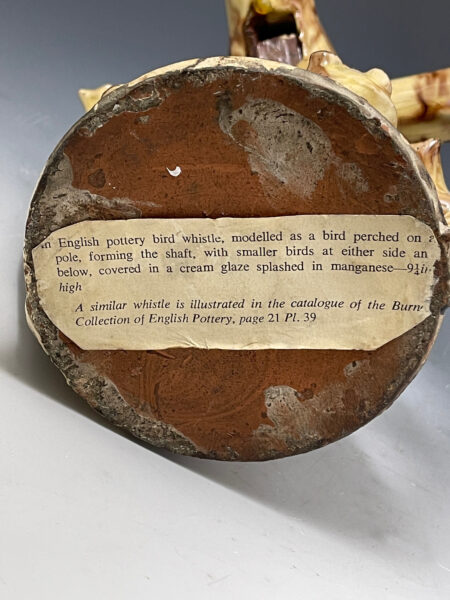 English pottery bird whistle, modelled as a bird perched on a
pole, forming the shaft, with smaller birds at either side an
below, covered in a cream glaze splashed in manganese—9¼in
high
A similar whistle is illustrated in the catalogue of the Burn
Collection of English Pottery, page 21 Pl. 39